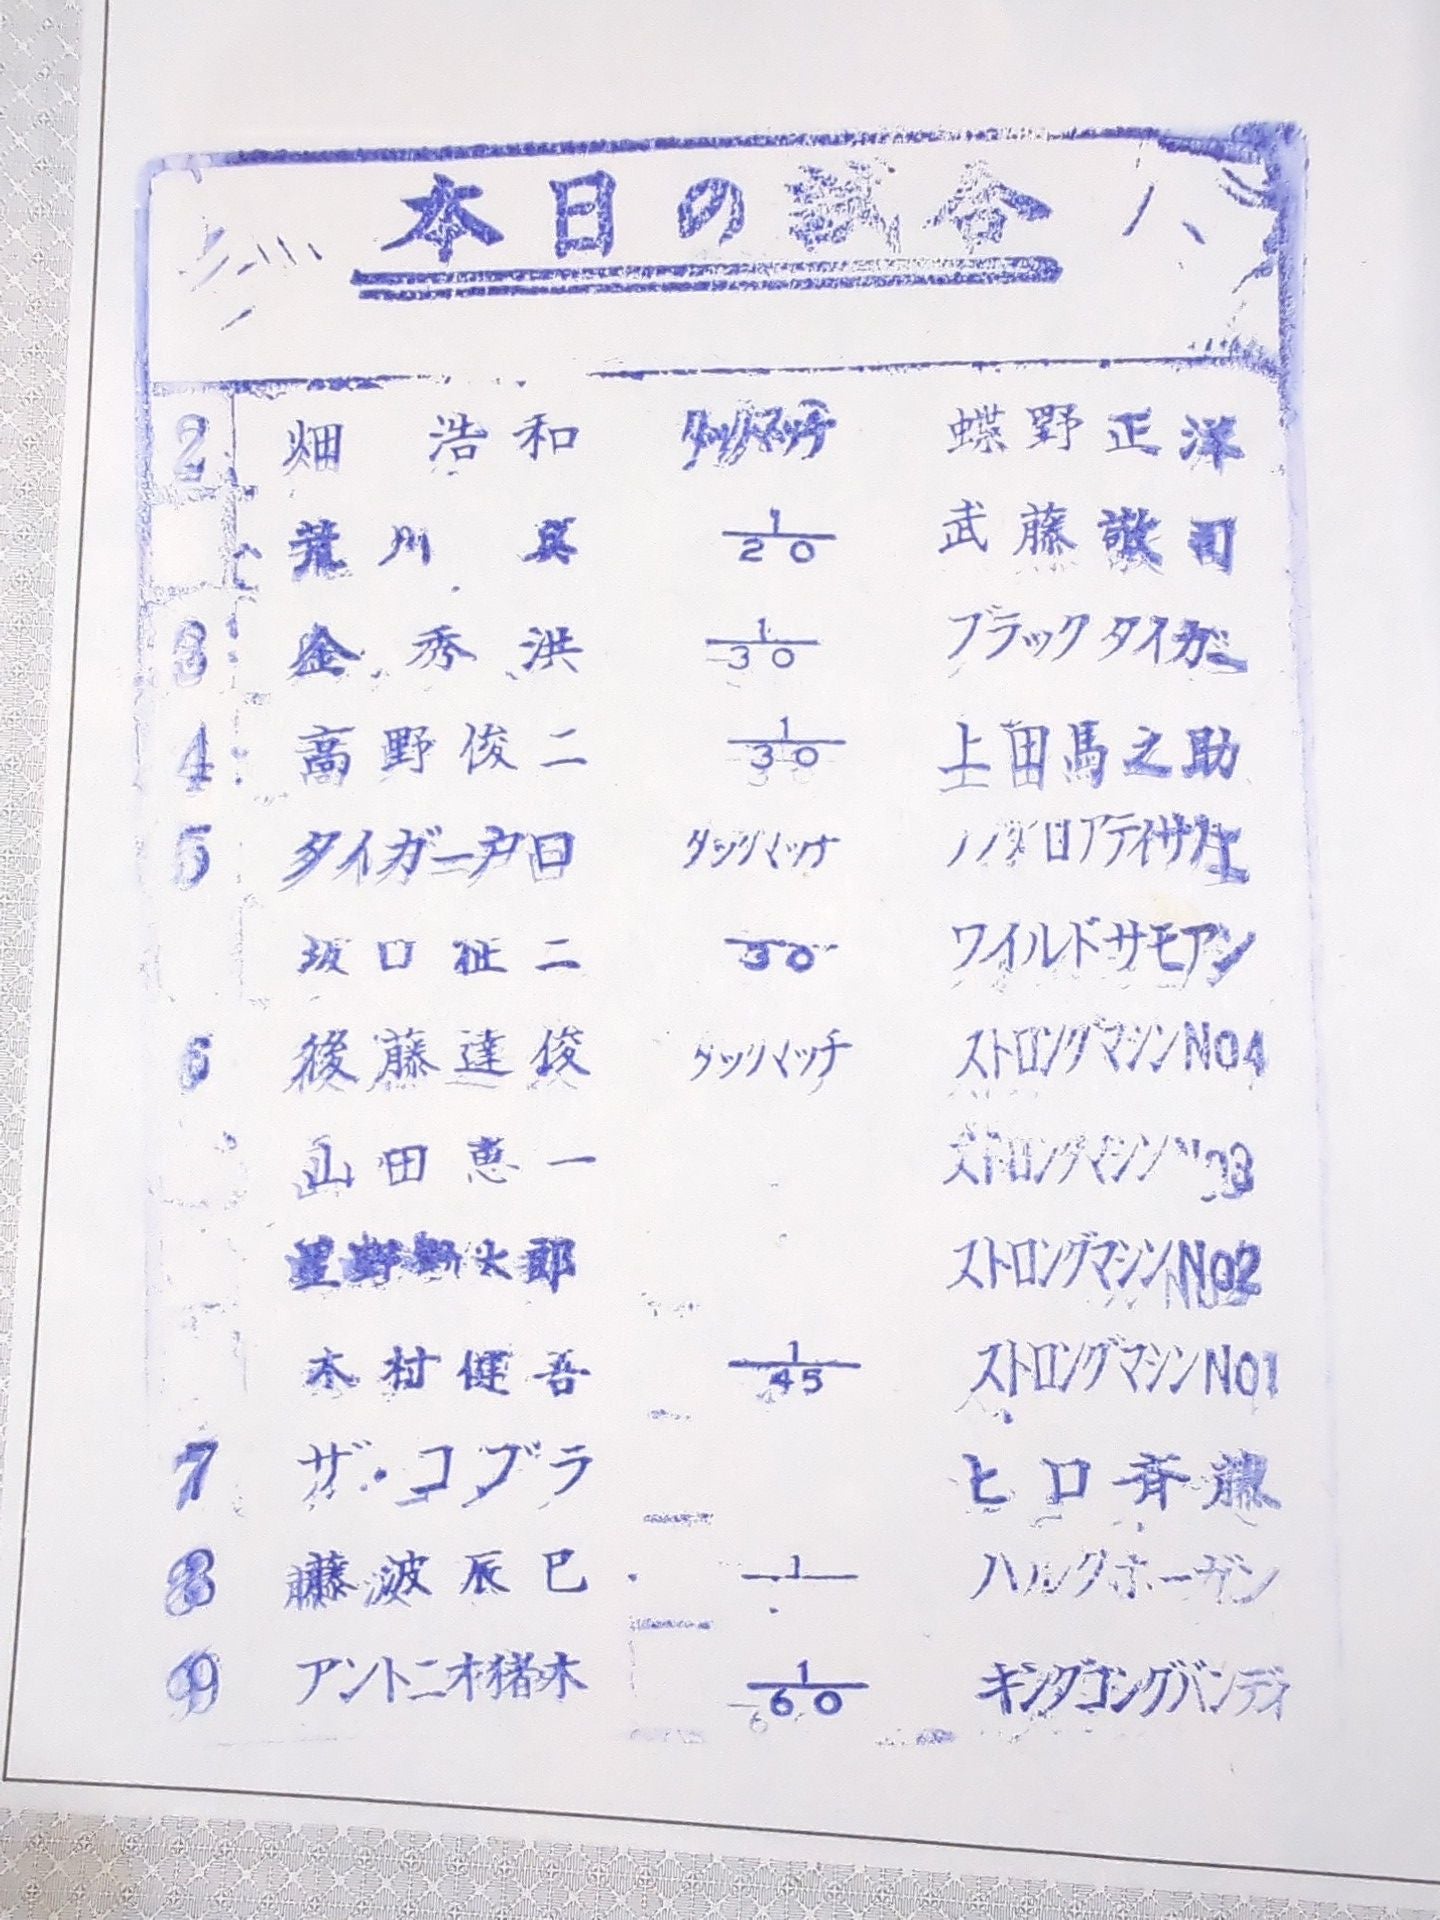 本日の試合
2 畑 浩和 タッグマッチ 蝶野正洋
荒川 真 1/20 武藤敬司
3 金秀洪 1/30 ブラックタイガー
4 高野俊二 1/30 上田馬之助
5 タイガー戸口 タッグマッチ
坂口征二 30 ワイルドサモアン
6 後藤達俊 タッグマッチ ストロングマシンNO4
山田恵一 ストロングマシンNO3
星野勘太郎 ストロングマシンNO2
木村健吾 1/45 ストロングマシンNO1
7 ザ・コブラ ヒロ斉藤
8 藤波辰巳 1 ハルクホーガン
9 アントニオ猪木 1/60 キングコングバンディ